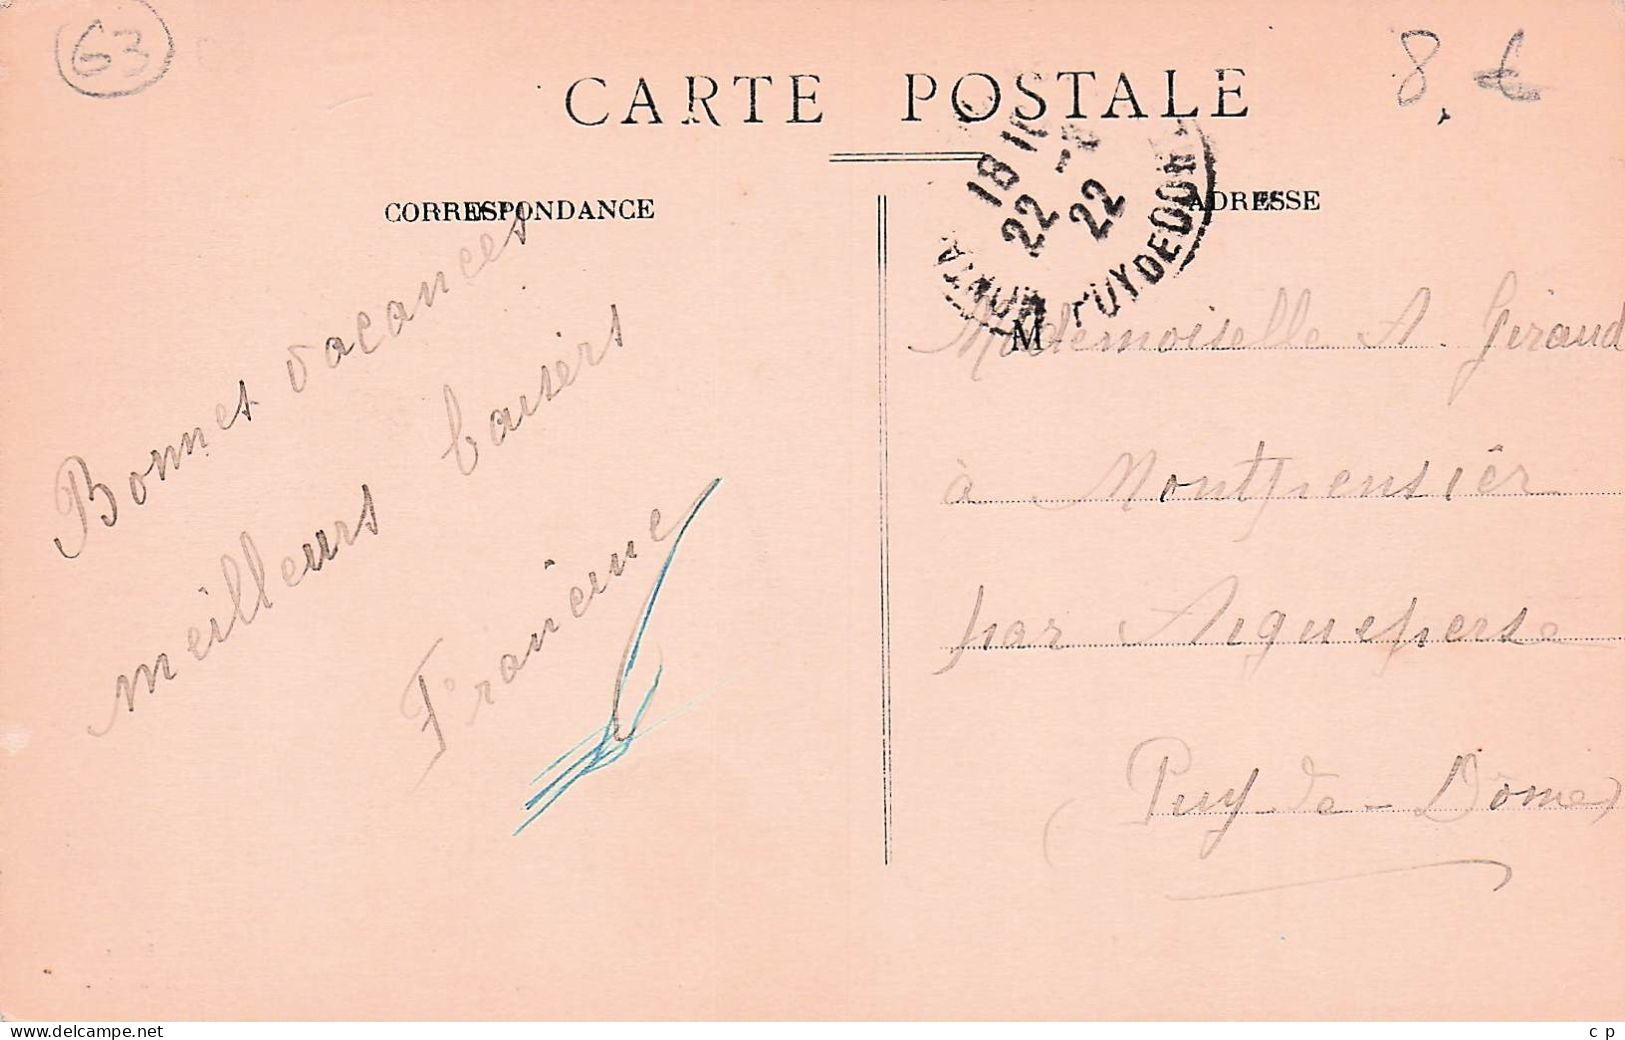 63
8. €
CARTE POSTALE
CORRESPONDANCE
ADRESSE
18
22 22
PUY DE DOME
Bonnes vacances
meilleurs baisers
Francine
M
Mademoiselle A. Giraud
à Montpensier
par Aigueperse
(Puy-de-Dôme)
www.delcampe.net
c p